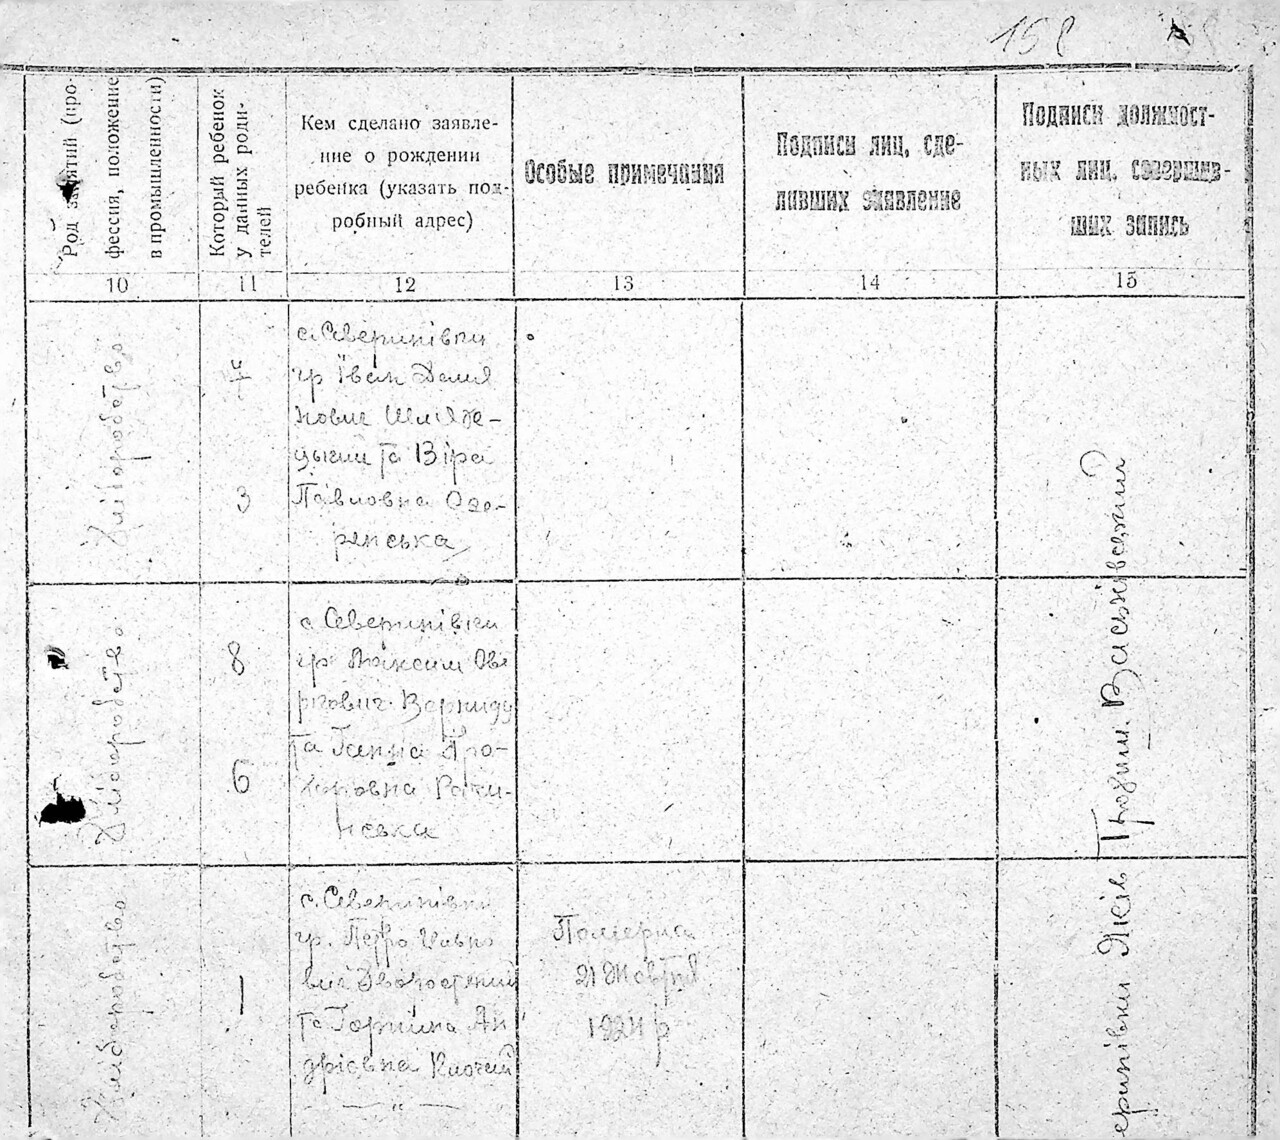 158
Род занятий (про-
фессия, положение
в промышленности)
Который ребенок
у данных роди-
телей
Кем сделано заявле-
ние о рождении
ребенка (указать под-
робный адрес)
Особые примечания
Подписи лиц, сде-
лавших заявление
Подписи должност-
ных лиц, совершив-
ших запись
10
11
12
13
14
15
Хліборобство
7
3
с. Северинівки
гр Іван Демя
нович
та Віра
Павловна Озе-
ренська
Хліборобство
8
6
с. Северинівки
гр Максим Ове
ркович Верниду
та Ганна Про-
хоровна Рачи-
нська
Хліборобство
1
с. Северинівки
гр. Петро Ивано
вич
та Горпина Ан
дрієвна Клочай
Померла
21 Жовтня
1924 р
еринівки Яків Трохим. Васьківський